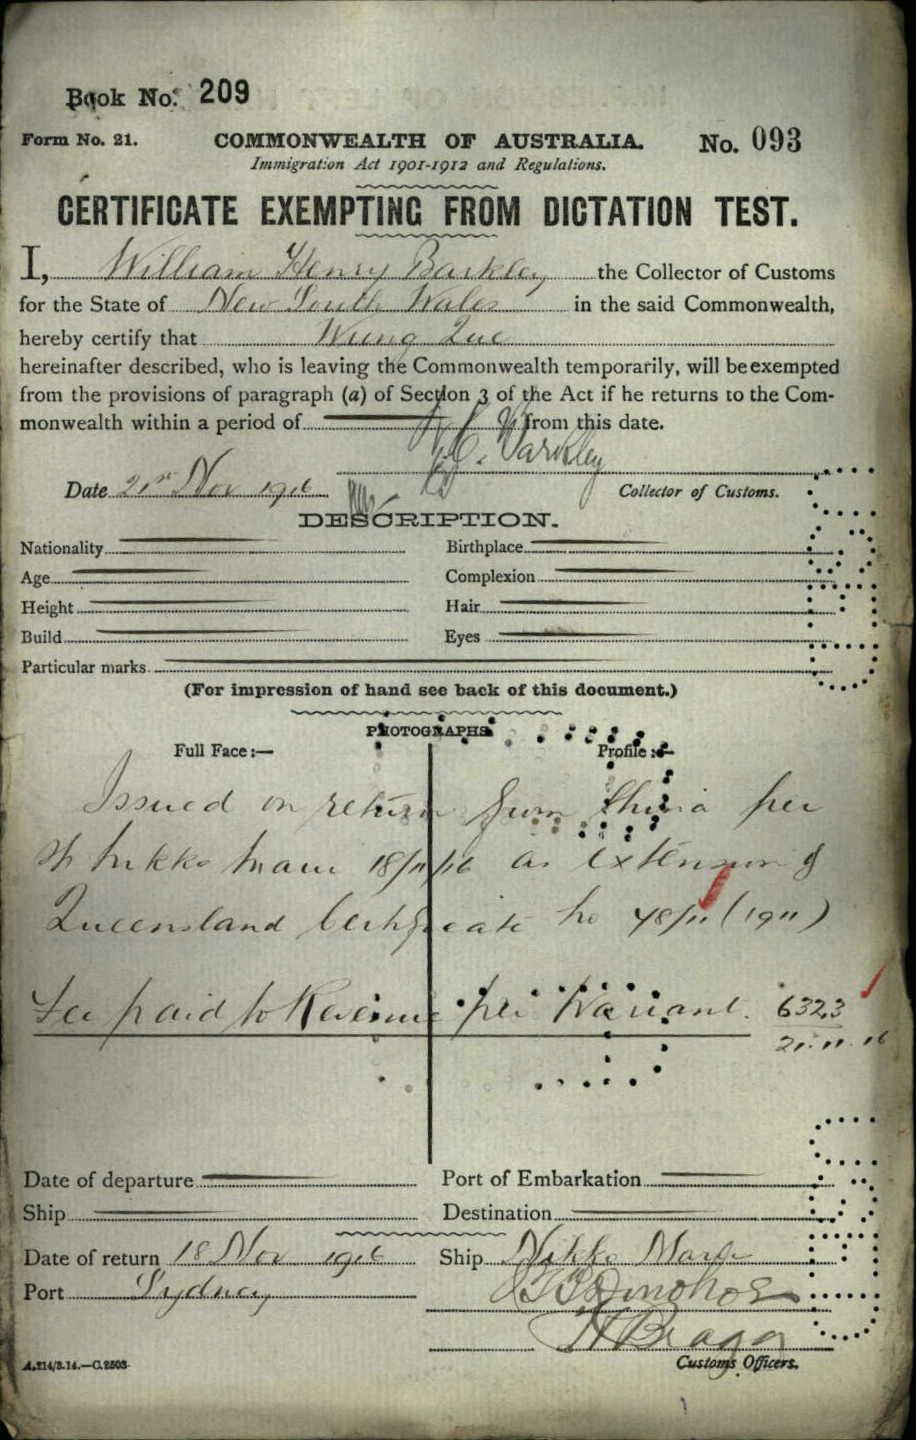 Book No. 209
Form No. 21. COMMONWEALTH OF AUSTRALIA. No. 093
Immigration Act 1901-1912 and Regulations.
CERTIFICATE EXEMPTING FROM DICTATION TEST.
I, William Henry Barkley the Collector of Customs
for the State of New South Wales in the said Commonwealth,
hereby certify that Wung Que
hereinafter described, who is leaving the Commonwealth temporarily, will be exempted
from the provisions of paragraph (a) of Section 3 of the Act if he returns to the Com-
monwealth within a period of from this date.
W. H. Barkley
Date 21st Nov 1916 Collector of Customs.
DESCRIPTION.
Nationality Birthplace
Age Complexion
Height Hair
Build Eyes
Particular marks
(For impression of hand see back of this document.)
PHOTOGRAPHS
Full Face:— Profile:—
Issued on return from China per
Nikko Maru 18/11/16 as extension of
Queensland Certificate No 48/11 (1911)
Fee paid to Revenue per Warrant. 6323
21.11.16
Date of departure Port of Embarkation
Ship Destination
Date of return 18 Nov 1916 Ship Nikko Maru
Port Sydney Donohoe
Bragg
A.214/3.14.—C.2503. Customs Officers.